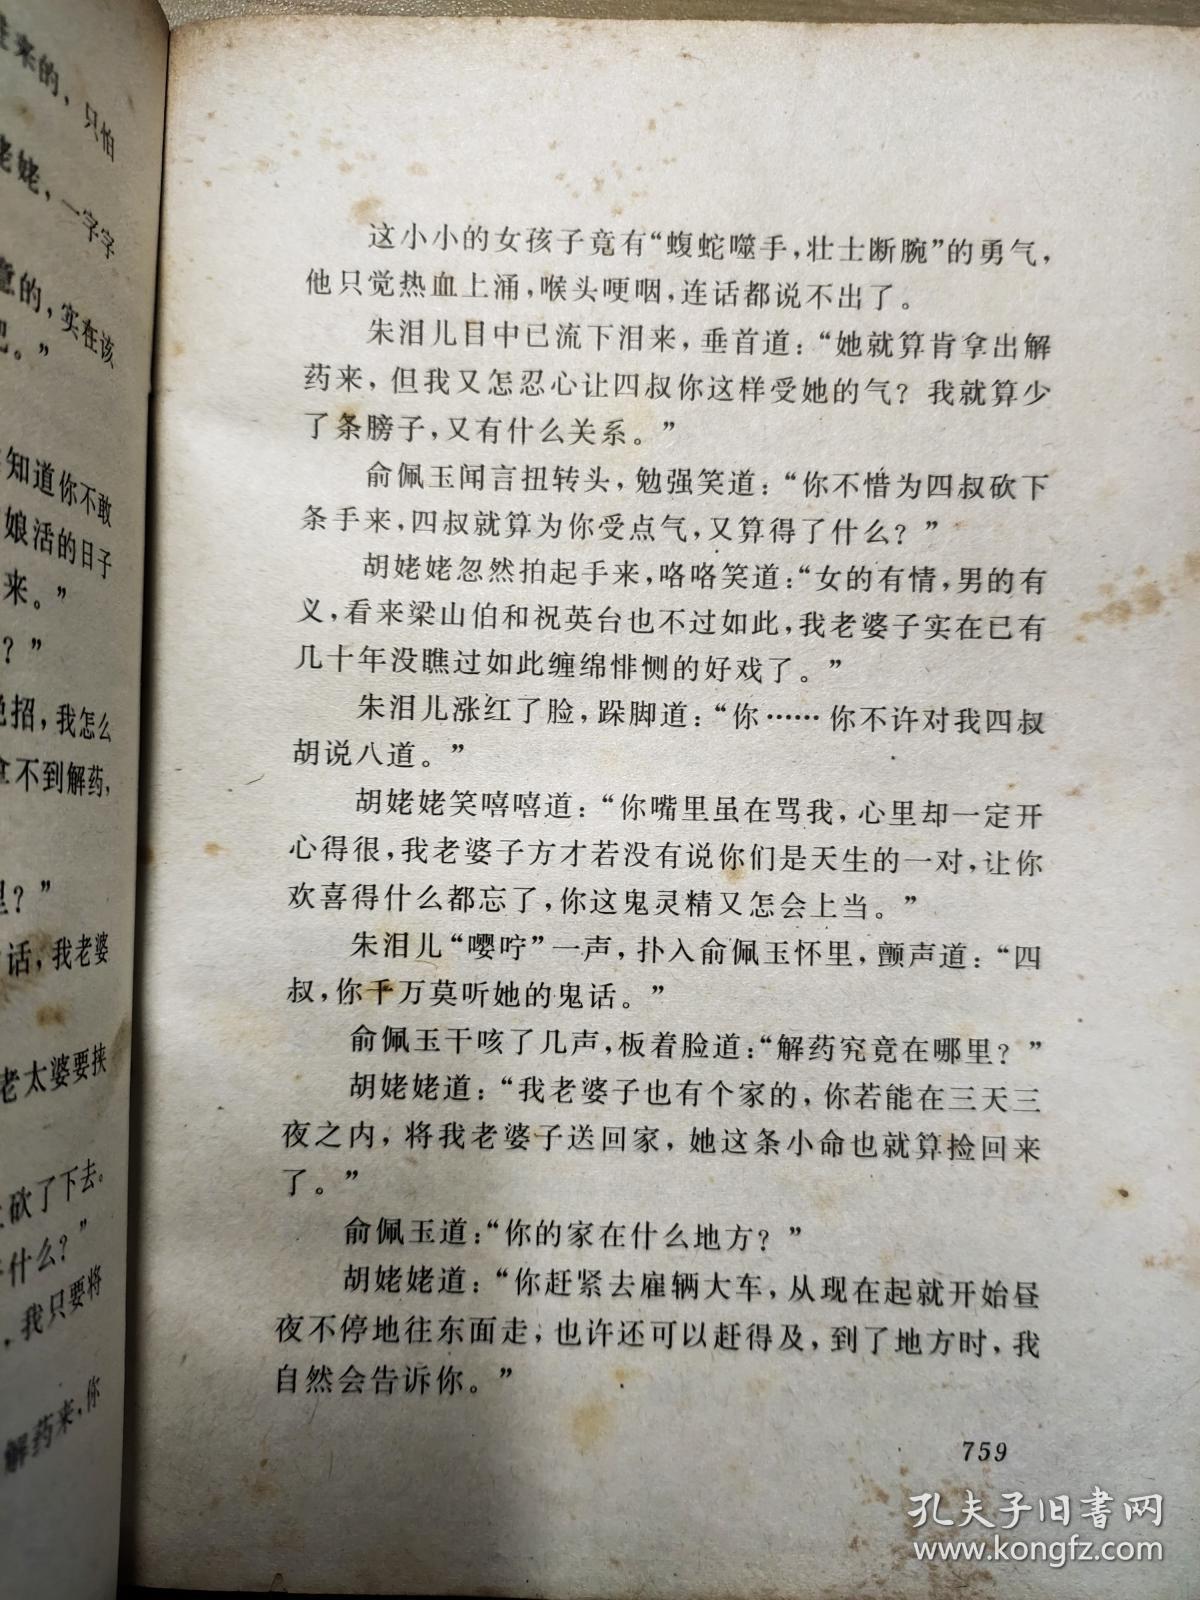 往来的，只怕
姥姥，一字字
意的，实在该
吧。”
知道你不敢
娘活的日子
来。”
？”
绝招，我怎么
拿不到解药，
里？”
话，我老婆
老太婆要挟
砍了下去。
什么？”
，我只要将
解药来，你
这小小的女孩子竟有“蝮蛇噬手，壮士断腕”的勇气，
他只觉热血上涌，喉头哽咽，连话都说不出了。
朱泪儿目中已流下泪来，垂首道：“她就算肯拿出解
药来，但我又怎忍心让四叔你这样受她的气？我就算少
了条膀子，又有什么关系。”
俞佩玉闻言扭转头，勉强笑道：“你不惜为四叔砍下
条手来，四叔就算为你受点气，又算得了什么？”
胡姥姥忽然拍起手来，咯咯笑道：“女的有情，男的有
义，看来梁山伯和祝英台也不过如此，我老婆子实在已有
几十年没瞧过如此缠绵悱恻的好戏了。”
朱泪儿涨红了脸，跺脚道：“你……你不许对我四叔
胡说八道。”
胡姥姥笑嘻嘻道：“你嘴里虽在骂我，心里却一定开
心得很，我老婆子方才若没有说你们是天生的一对，让你
欢喜得什么都忘了，你这鬼灵精又怎会上当。”
朱泪儿“嘤咛”一声，扑入俞佩玉怀里，颤声道：“四
叔，你千万莫听她的鬼话。”
俞佩玉干咳了几声，板着脸道：“解药究竟在哪里？”
胡姥姥道：“我老婆子也有个家的，你若能在三天三
夜之内，将我老婆子送回家，她这条小命也就算捡回来
了。”
俞佩玉道：“你的家在什么地方？”
胡姥姥道：“你赶紧去雇辆大车，从现在起就开始昼
夜不停地往东面走，也许还可以赶得及，到了地方时，我
自然会告诉你。”
759
孔夫子旧书网
www.kongfz.com